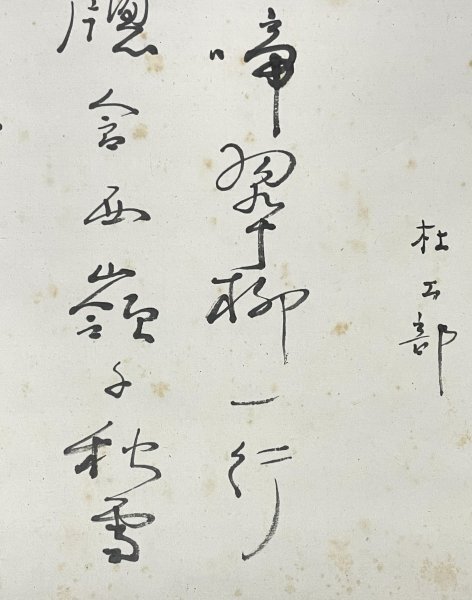 杜工部
啼翠柳一行
牕含西嶺千秋雪